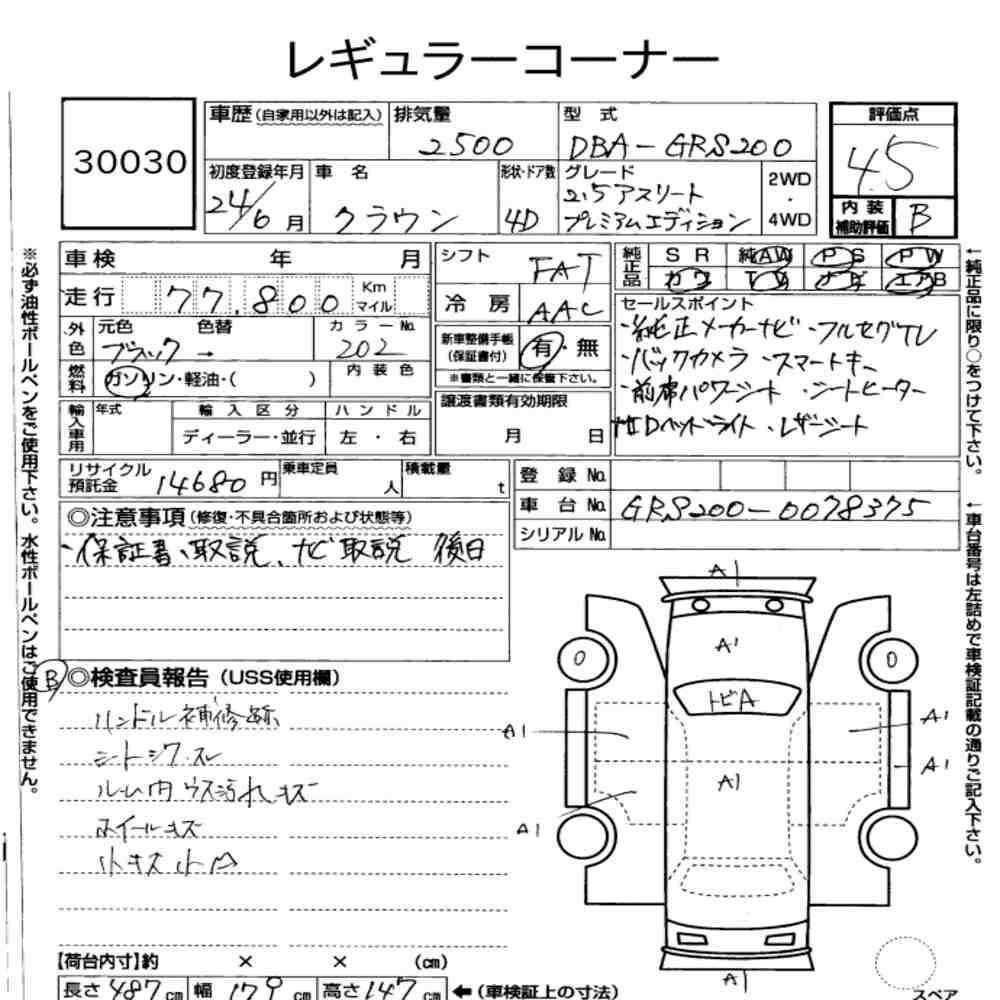 レギュラーコーナー
30030
車歴(自家用以外は記入)
排気量
2500
型 式
DBA-GRS200
評価点
4.5
初度登録年月
24/6月
車 名
クラウン
形状・ドア数
4D
グレード
2.5アスリート
プレミアムエディション
2WD
・
4WD
内装
補助評価
B
車検 年 月
シフト
FAT
純正品
SR 純AW PS PW
走行 77,800 Km マイル
冷房 AAC
セールスポイント
・純正メーカーナビ・フルセグTV
・バックカメラ・スマートキー
・前席パワーシート・シートヒーター
・HIDヘッドライト・レザーシート
外色
元色 色替
ブラック →
カラーNo.
202
新車整備手帳
(保証書付)
有・無
※書類と一緒に保管下さい。
燃料
ガソリン・軽油・( )
内装色
輸入車用
年式
輸入区分
ハンドル
ディーラー・並行
左・右
譲渡書類有効期限
月 日
リサイクル
預託金
14680円
乗車定員
人
積載量
t
登録No.
車台No. GRS200-0078375
シリアルNo.
◎注意事項(修復・不具合箇所および状態等)
・保証書、取説、ナビ取説 後日
B ◎検査員報告(USS使用欄)
ハンドル補修跡
シートシワ・スレ
ルーム内ウス汚れキズ
ホイールキズ
小キズ小凹
A1
0
0
A1
トビA
A1
A1
A1
A1
A1
A1
【荷台内寸】約 × × (cm)
長さ487cm 幅179cm 高さ147cm ←(車検証上の寸法)
スペア
※必ず油性ボールペンをご使用下さい。水性ボールペンはご使用できません。
←純正品に限り○をつけて下さい。
←車台番号は左詰めで車検証記載の通りご記入下さい。